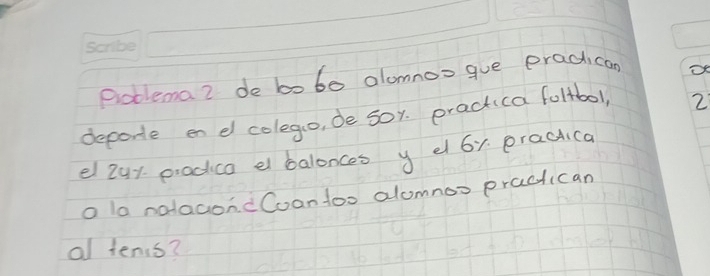 Scribe
Problema 2 de los 60 alumnos que practican
deporte en el colegio, de 50% practica foltbol,
el 24% practica el balonces y el 6% practica
a la natacion ¿Cuantos alumnos practican
al tenis?
2